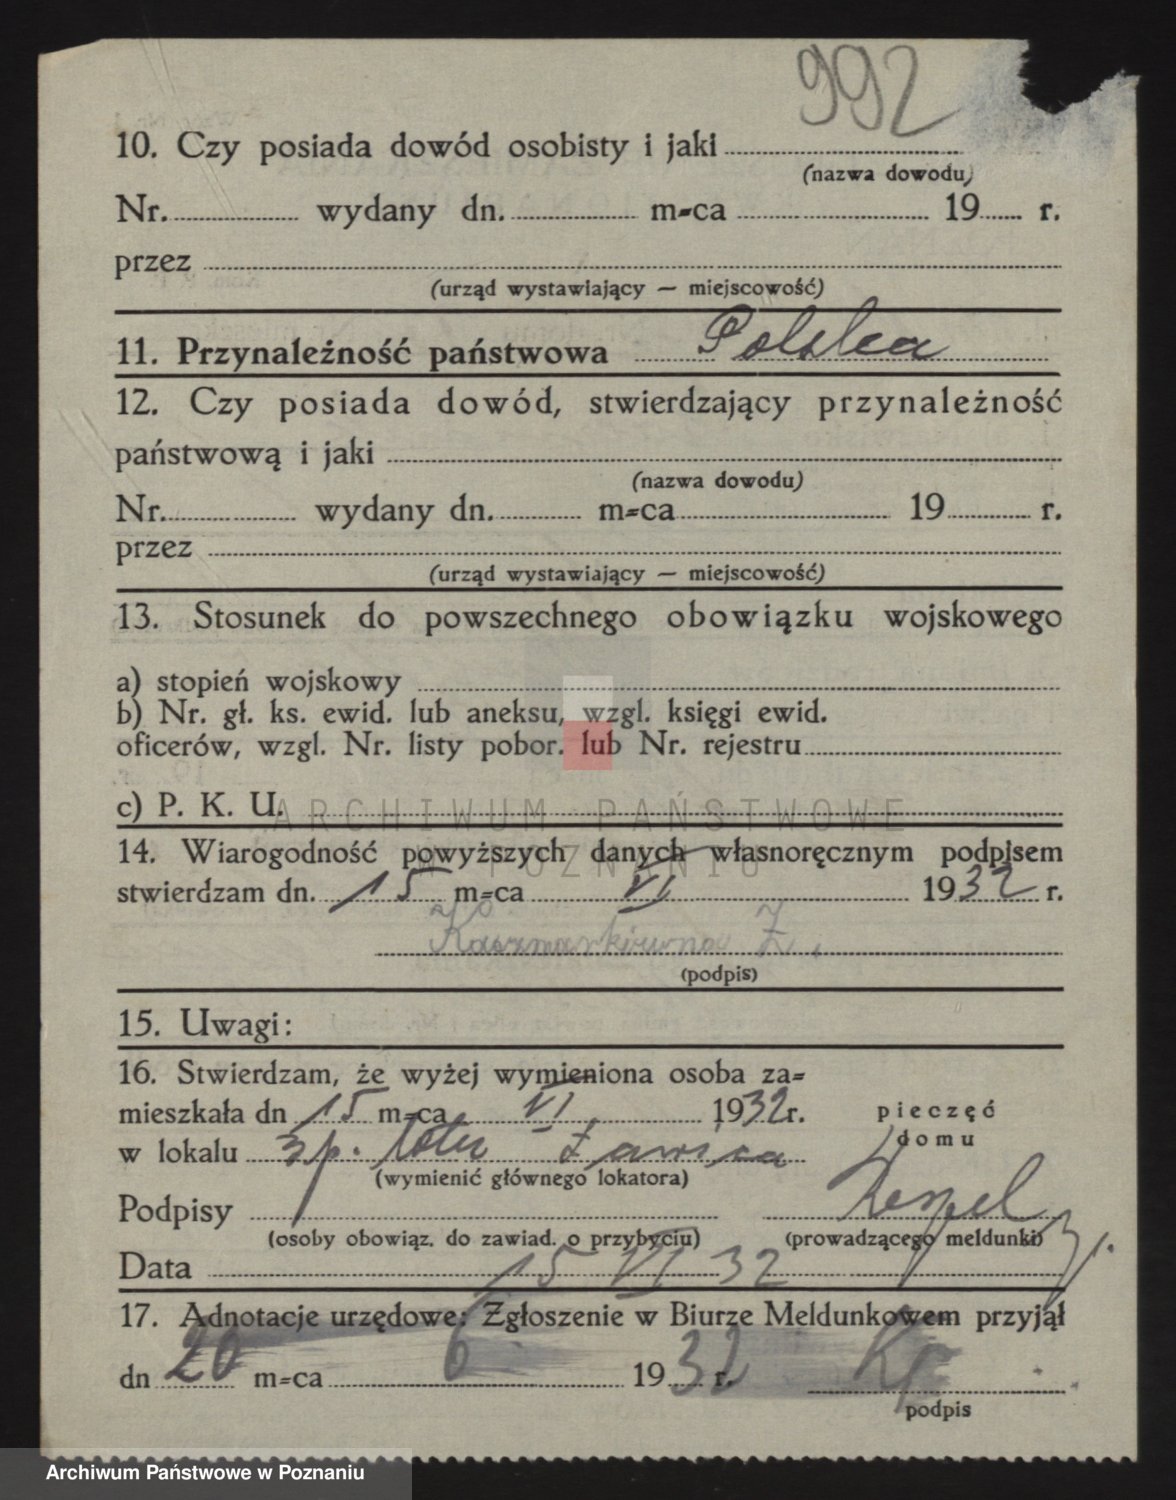 992
10. Czy posiada dowód osobisty i jaki
(nazwa dowodu)
Nr. wydany dn. m-ca 19 r.
przez
(urząd wystawiający — miejscowość)
11. Przynależność państwowa Polska
12. Czy posiada dowód, stwierdzający przynależność
państwową i jaki
(nazwa dowodu)
Nr. wydany dn. m-ca 19 r.
przez
(urząd wystawiający — miejscowość)
13. Stosunek do powszechnego obowiązku wojskowego
a) stopień wojskowy
b) Nr. gł. ks. ewid. lub aneksu, wzgl. księgi ewid.
oficerów, wzgl. Nr. listy pobor. lub Nr. rejestru
c) P. K. U.
ARCHIWUM PAŃSTWOWE
W POZNANIU
14. Wiarogodność powyższych danych własnoręcznym podpisem
stwierdzam dn. 15 m-ca VI 1932 r.
Kaczmarkówna Z.
(podpis)
15. Uwagi:
16. Stwierdzam, że wyżej wymieniona osoba za-
mieszkała dn 15 m-ca VI 1932 r.
pieczęć
domu
w lokalu
(wymienić głównego lokatora)
Podpisy
(osoby obowiąz. do zawiad. o przybyciu) (prowadzącego meldunki)
Data 15 VI 32
17. Adnotacje urzędowe: Zgłoszenie w Biurze Meldunkowem przyjął
dn 20 m-ca 6 1932 r.
podpis
Archiwum Państwowe w Poznaniu